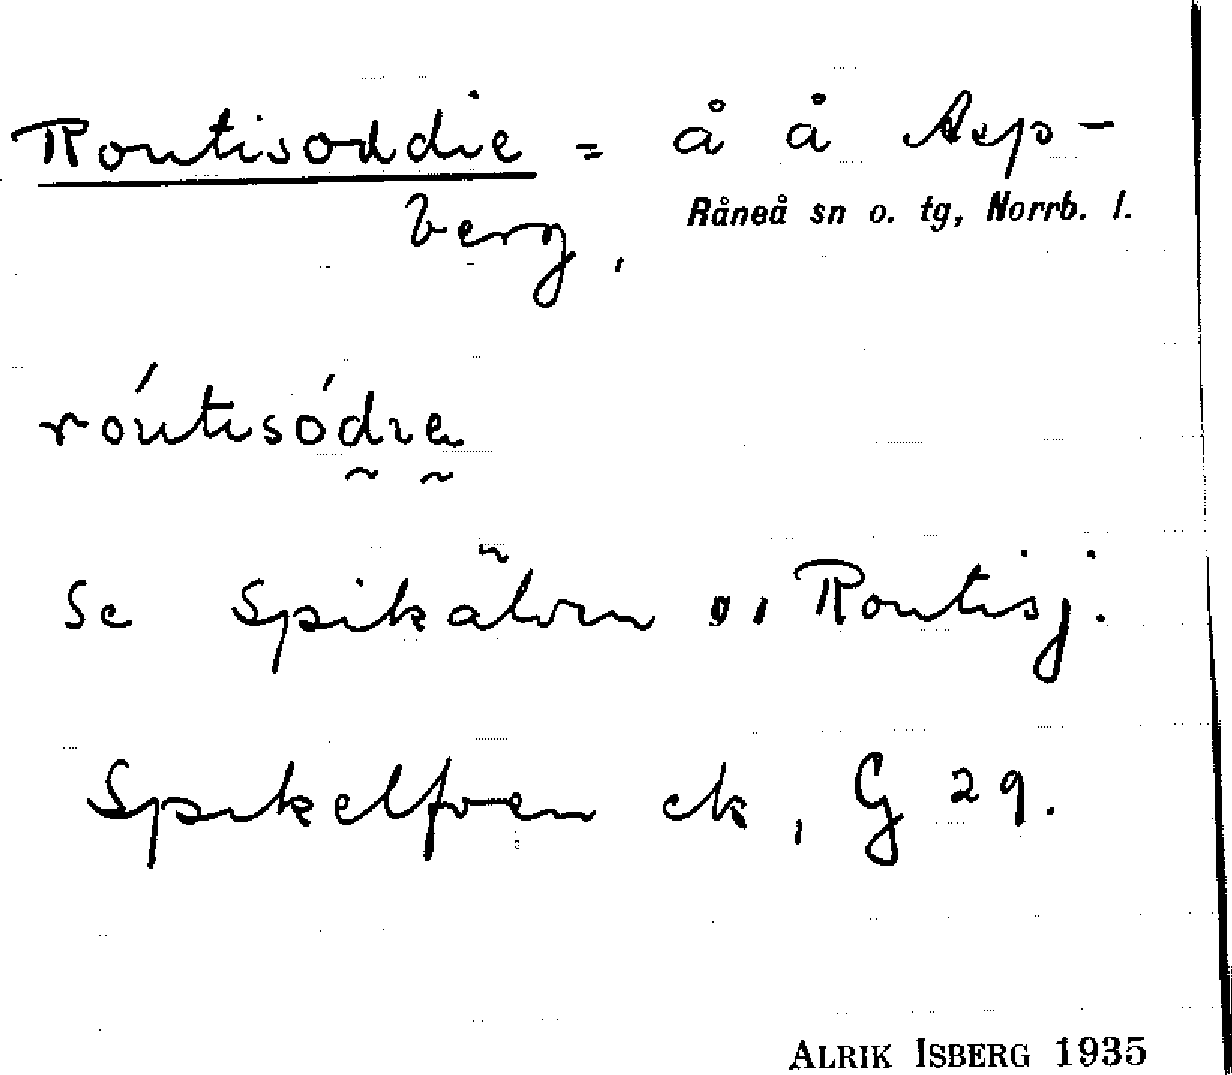 Routisoddie = å å Asp-
berg,
Råneå sn o. tg, Norrb. l.
róutisódie
Se Spikälven o, Routisj.
Spikelfven ek, G 29.
ALRIK ISBERG 1935